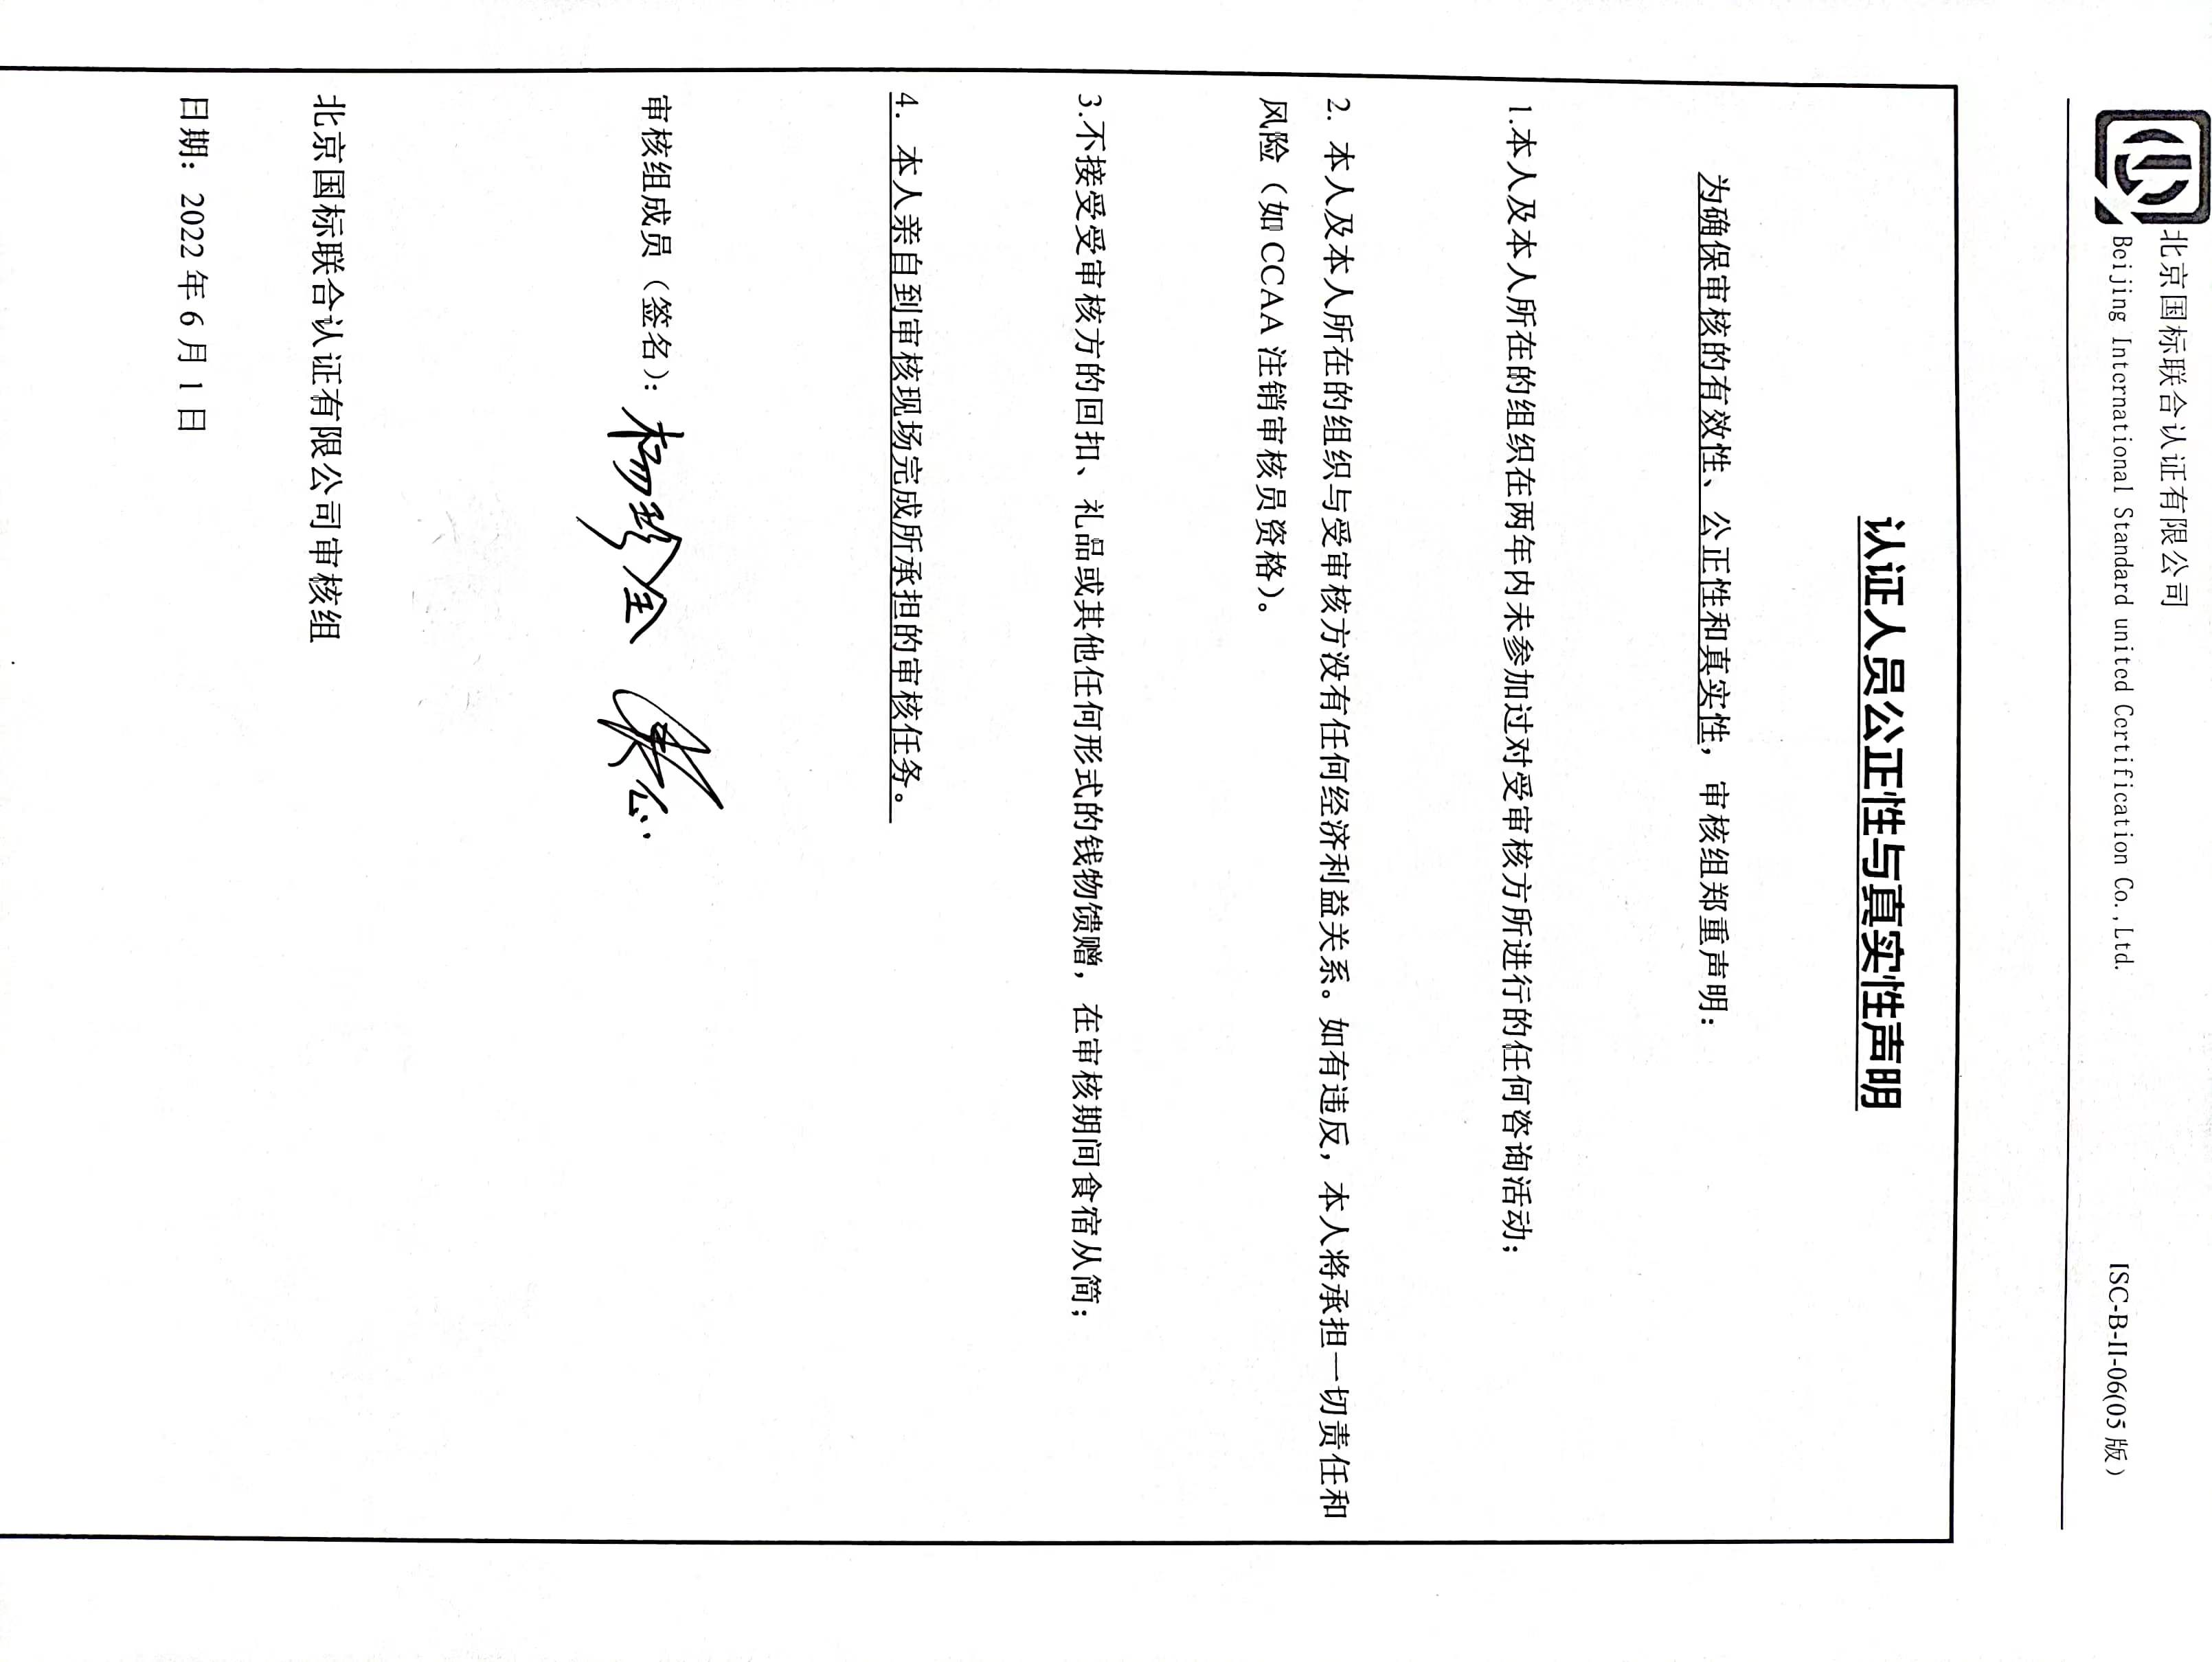 北京国标联合认证有限公司
Beijing International Standard united Certification Co.,Ltd.
ISC-B-II-06(05 版)
认证人员公正性与真实性声明
为确保审核的有效性、公正性和真实性，审核组郑重声明：
1.本人及本人所在的组织在两年内未参加过对受审核方所进行的任何咨询活动；
2. 本人及本人所在的组织与受审核方没有任何经济利益关系。如有违反，本人将承担一切责任和
风险（如 CCAA 注销审核员资格）。
3.不接受受审核方的回扣、礼品或其他任何形式的钱物馈赠，在审核期间食宿从简；
4. 本人亲自到审核现场完成所承担的审核任务。
审核组成员（签名）：杨珍全
北京国标联合认证有限公司审核组
日期：2022 年 6 月 1 日